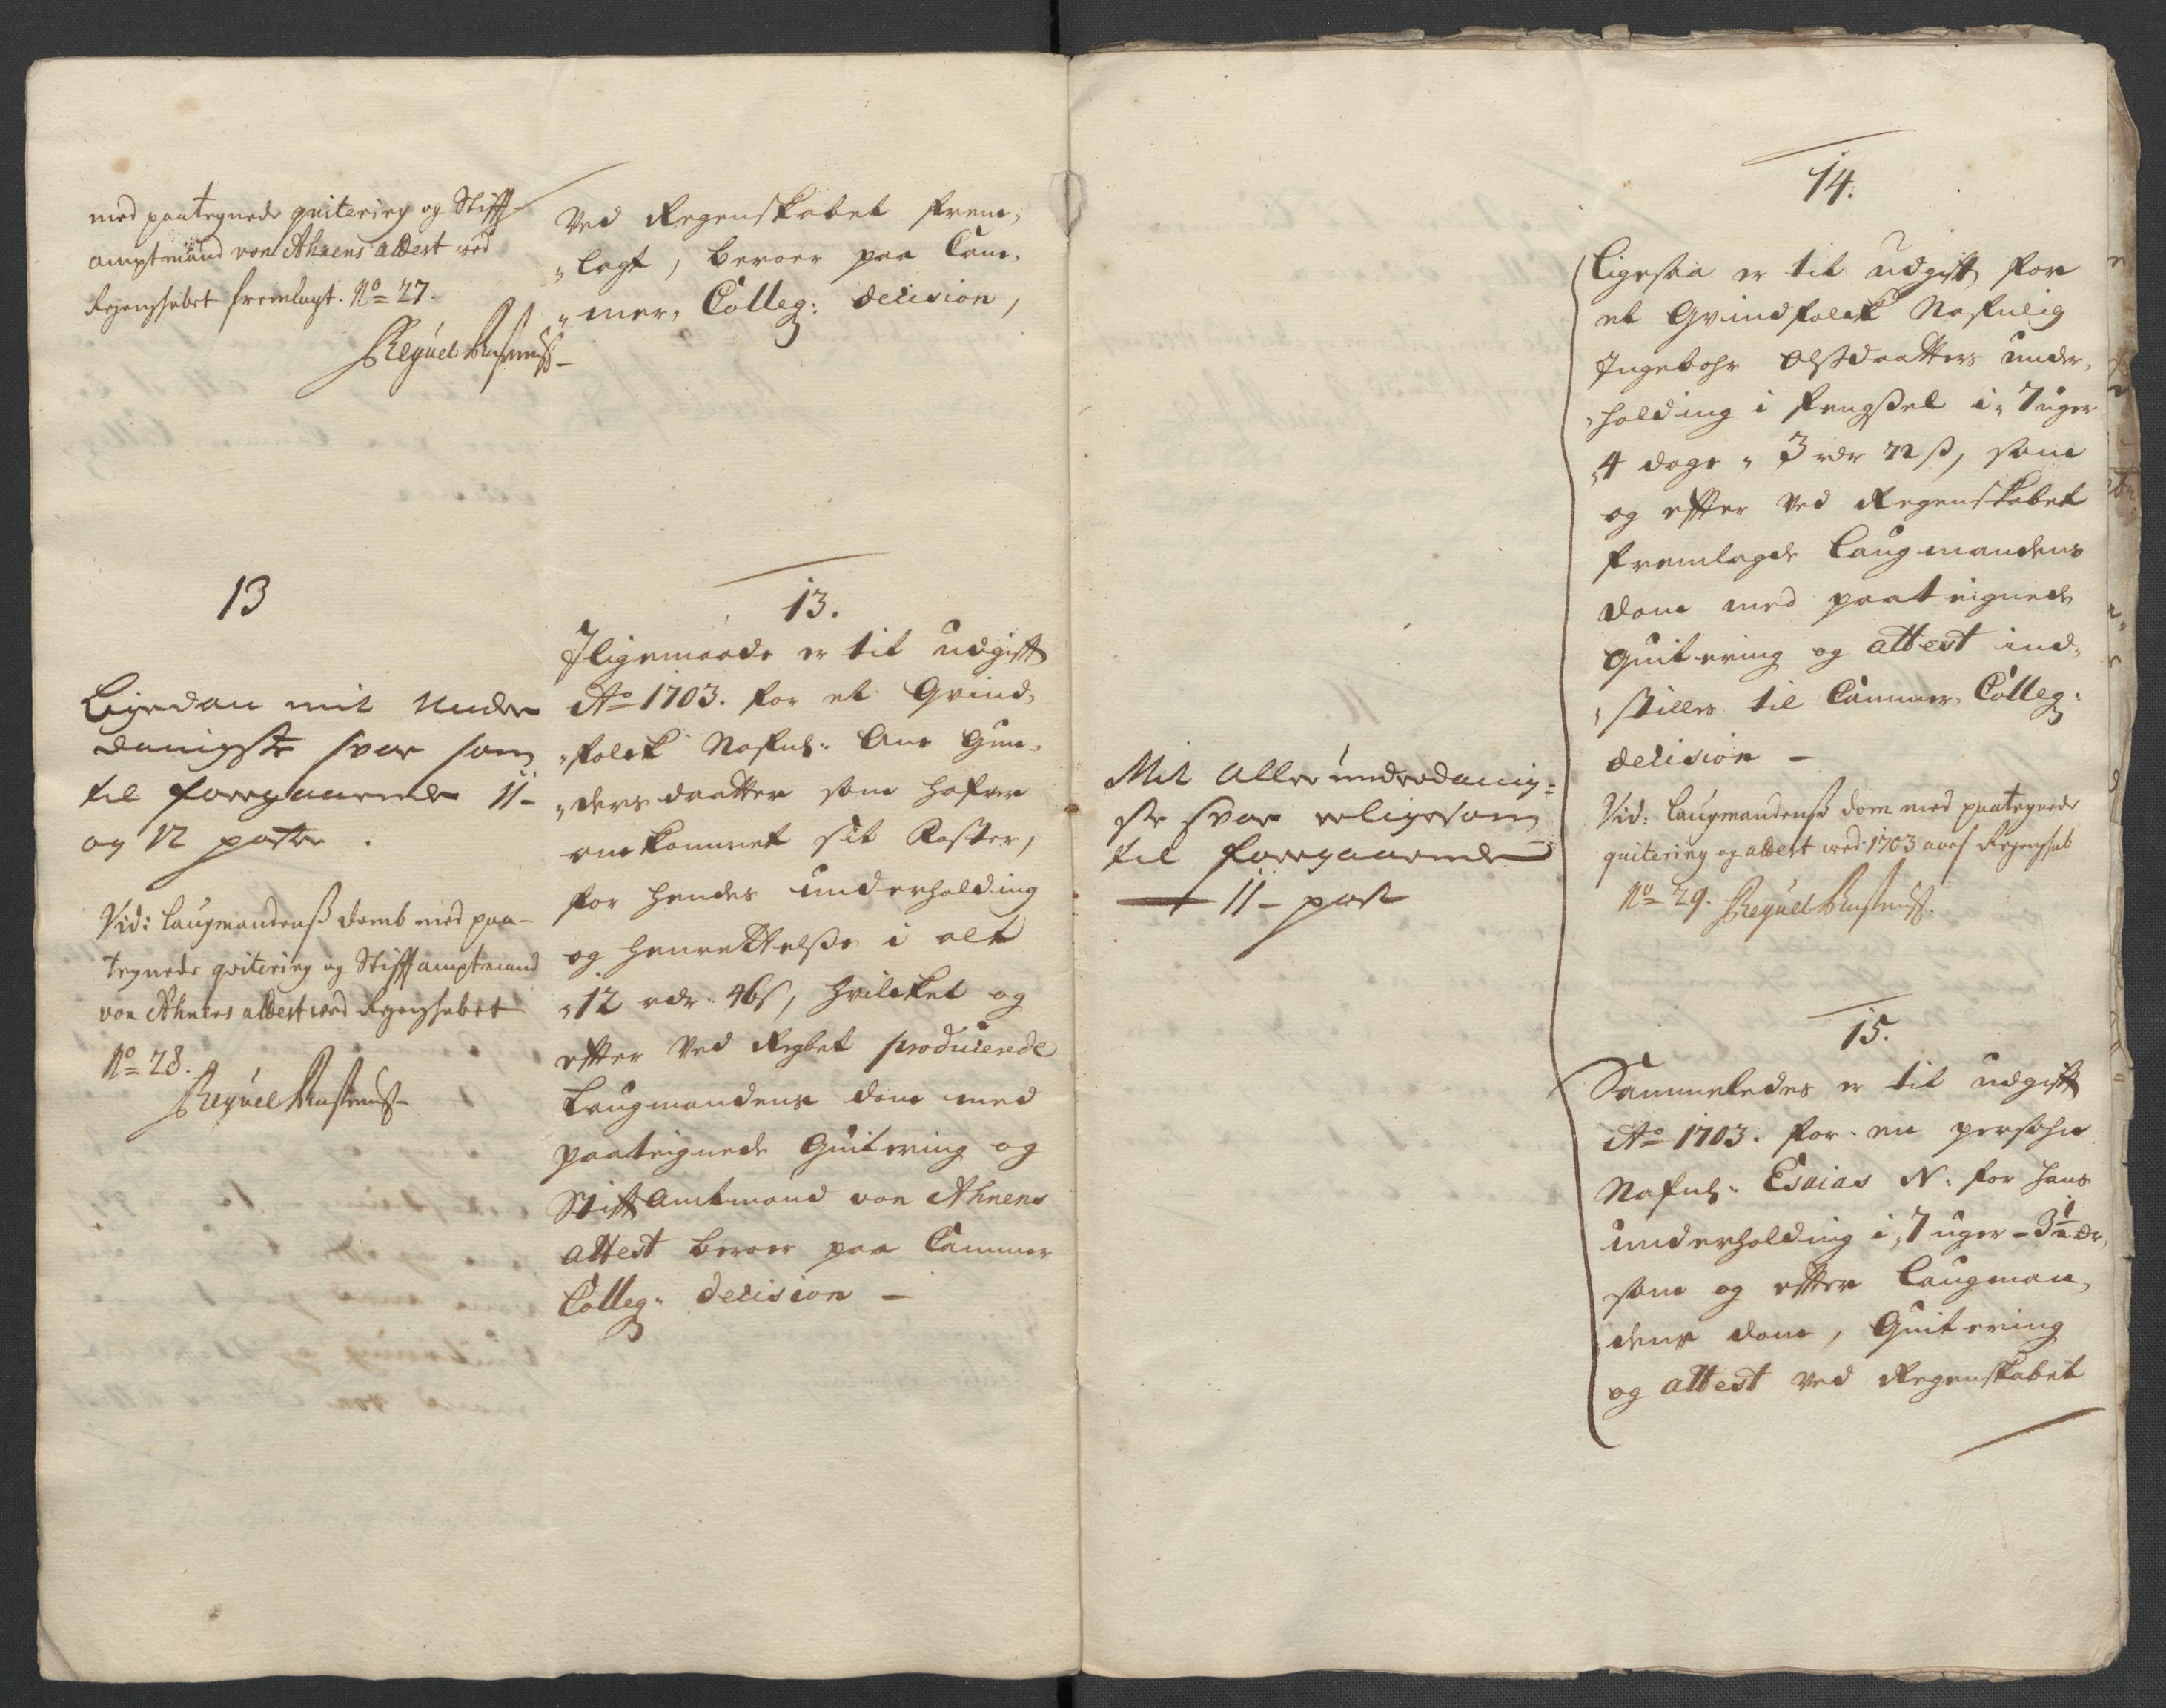 med paategnede quitering og Stifft-
amptmand von Ahnens attest ved
Regenskabet fremlagt. No 27.
Ved Regenskabet frem,
"lagt, beroer paa Cam,
"mer, Colleg: decision,
13
Ligedan mit under
danigste svar som
til forrgaaende 11-
og 12 poster.
Vid: laugmandenß domb med paa-
tegnede qvitering og Stifftamptmand
von Ahnens attest ved Regenskabet
No 28.
13.
Jligemaade er til udgift
Ao 1703. for et Qvind,
"folck Nafnl: Ane Gun,
"ders daatter som hafver
omkommet sit Foster,
for hendes underholding
og henrettelße i alt
"12 rdr. 46 s, hvilcket og
effter Ved Regbet producerede
Laugmandens dom med
paateignede Quitering og
Stifft Amtmand von Ahnens
attest beroer paa Cammer
Colleg: decision -
Mit allerunderdanig:
ste svar er ligesom
til forrgaaende
11- post
14.
Ligesaa er til udgift for
et Qvindfolck Nafnlig
Ingebohr Olsdaatters under,
"holding i fengßel i, 7 uger
"4 dage " 3 rdr 72 ß, som
og effter Ved Regenskabet
fremlagde Laugmandens
dom med paateignede
Quitering og attest ind,
"stilles til Cammer, Colleg:
decision -
Vid: laugmandenß dom med paategnede
quitering og attest ved 1703 aars Regenskab
No 29.
15.
Sammeledes er til udgift
Ao 1703. for en persohn
Nafnl: Esaias N: for hans
underholding i, 7 uger - 3½ dr,
som og effter Laugman,
dens dom, Quitering
og attest Ved Regenskabet